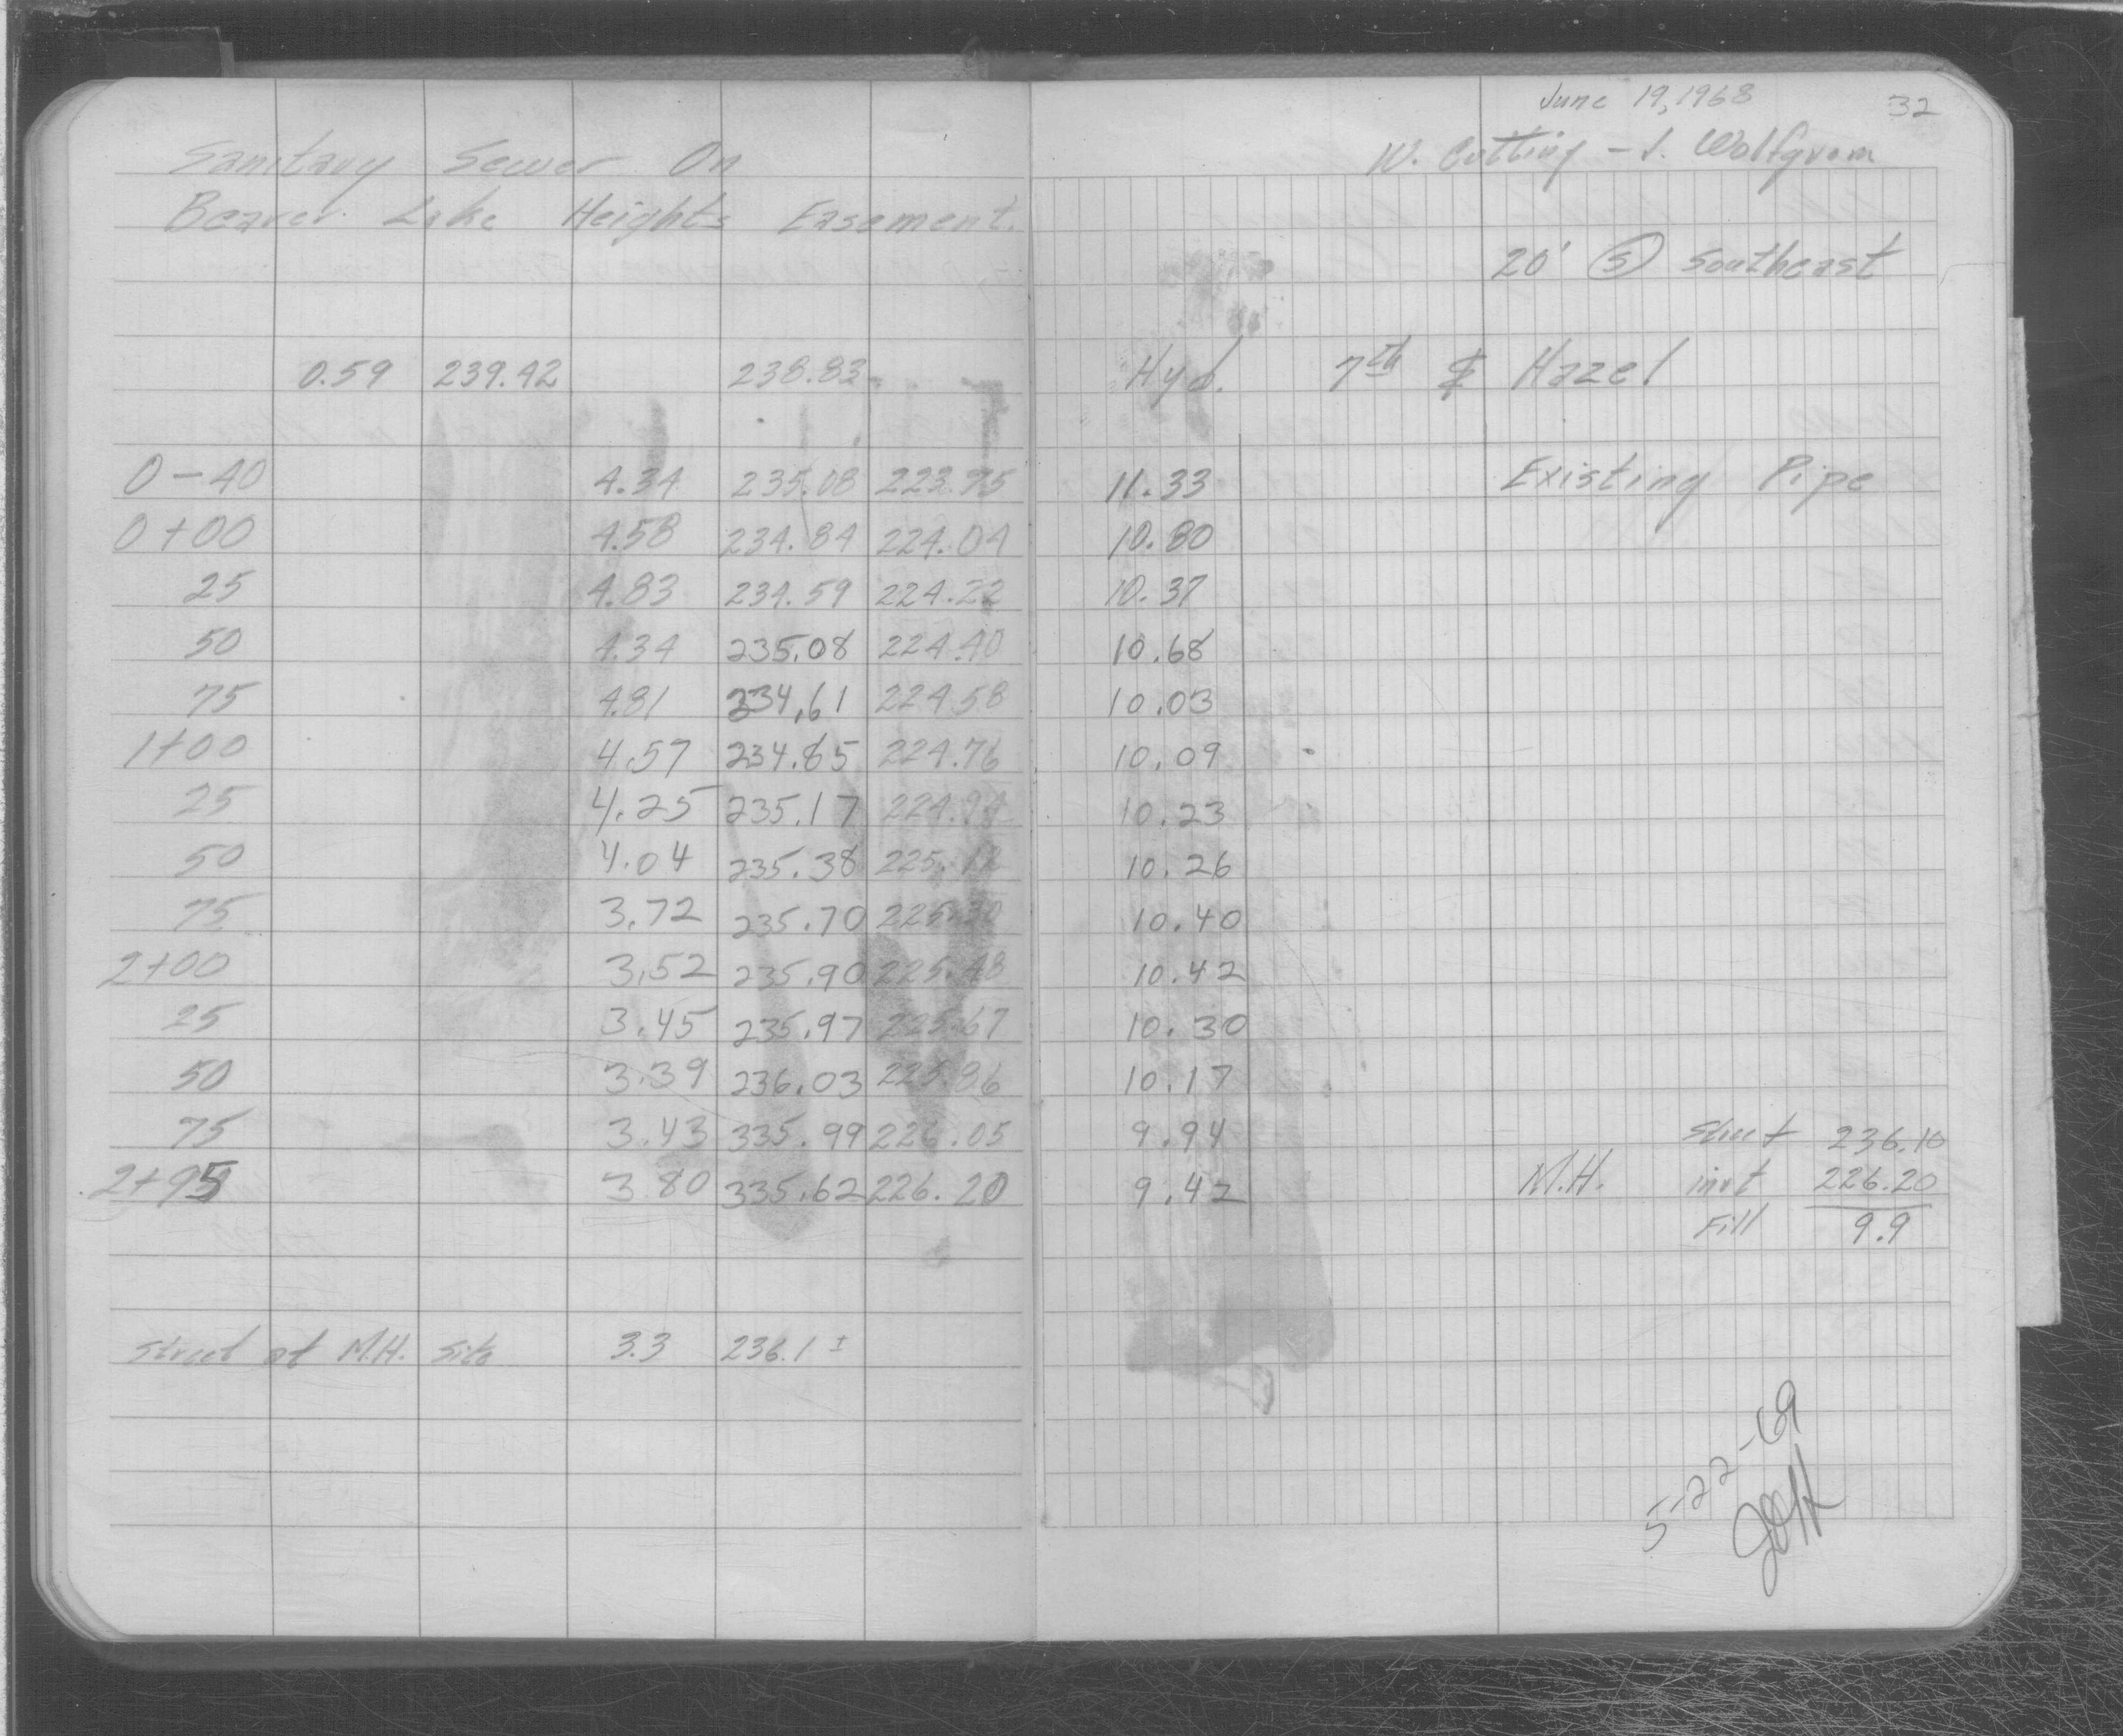 June 19, 1968 32
Sanitary Sewer On W. Cutting - J. Wolfgram
Beaver Lake Heights Easement.
20' (S) Southeast
0.59 239.42 238.83 Hyd. 7th & Hazel
0-40 4.34 235.08 223.75 11.33 Existing Pipe
0+00 4.58 234.84 224.04 10.80
25 4.83 234.59 224.22 10.37
50 4.34 235.08 224.40 10.68
75 4.81 234.61 224.58 10.03
1+00 4.57 234.85 224.76 10.09
25 4.25 235.17 224.94 10.23
50 4.04 235.38 225.12 10.26
75 3.72 235.70 225.30 10.40
2+00 3.52 235.90 225.48 10.42
25 3.45 235.97 225.67 10.30
50 3.39 236.03 225.86 10.17
75 3.43 335.99 226.05 9.94 Street 236.10
2+95 3.80 335.62 226.20 9.42 M.H. invt 226.20
Fill 9.9
Street at M.H. Site 3.3 236.1 ±
5-22-69